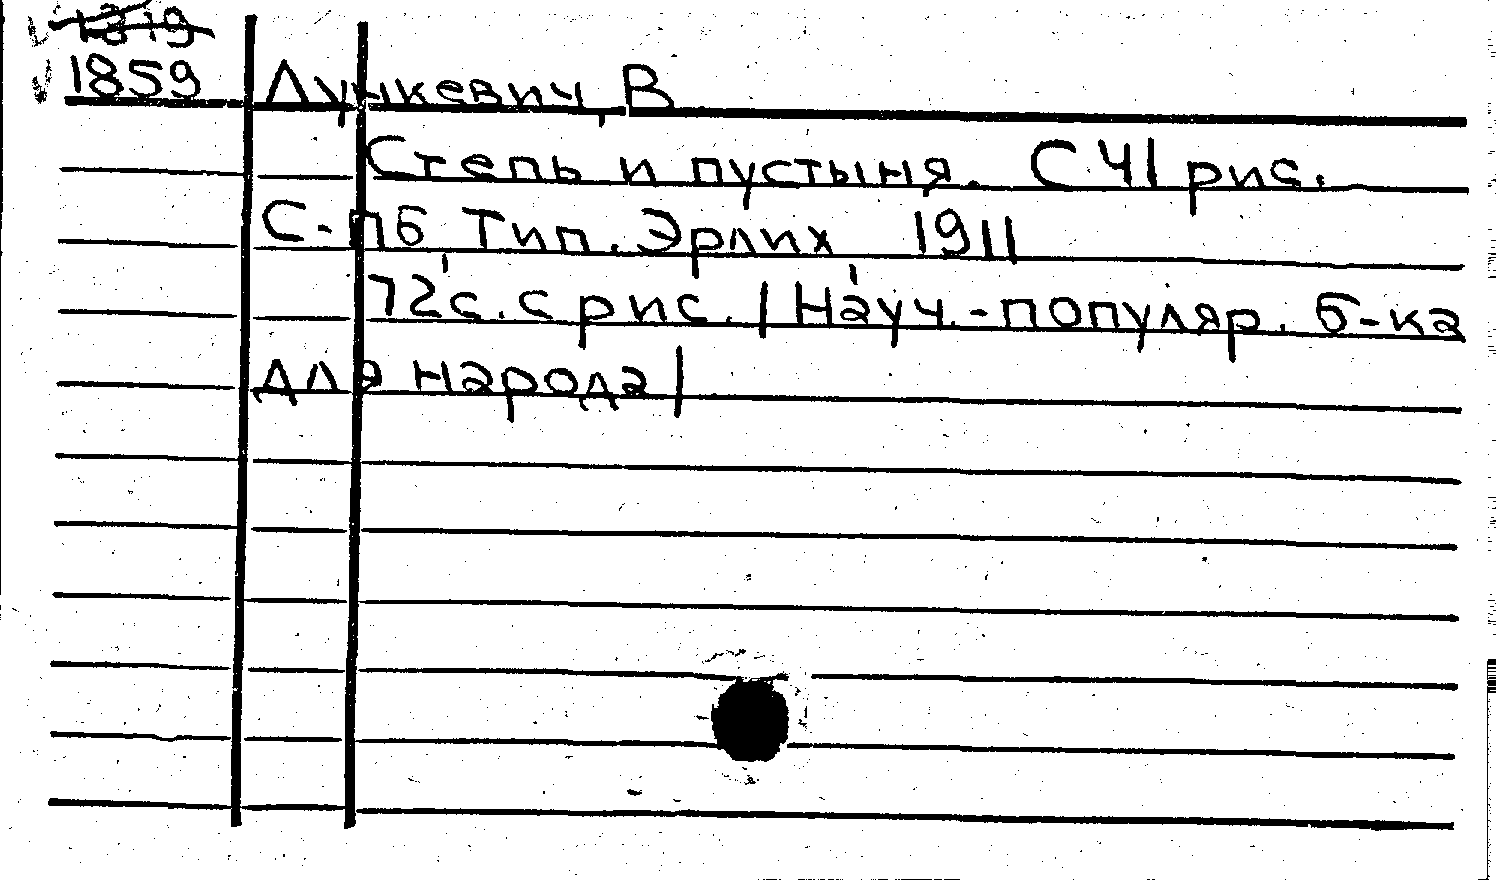 1319
1859 Лункевич, В
Степь и пустыня. С 41 рис.
С-пб Тип. Эрлих 1911
72 с. с рис. / Науч.-популяр. б-ка
для народа /